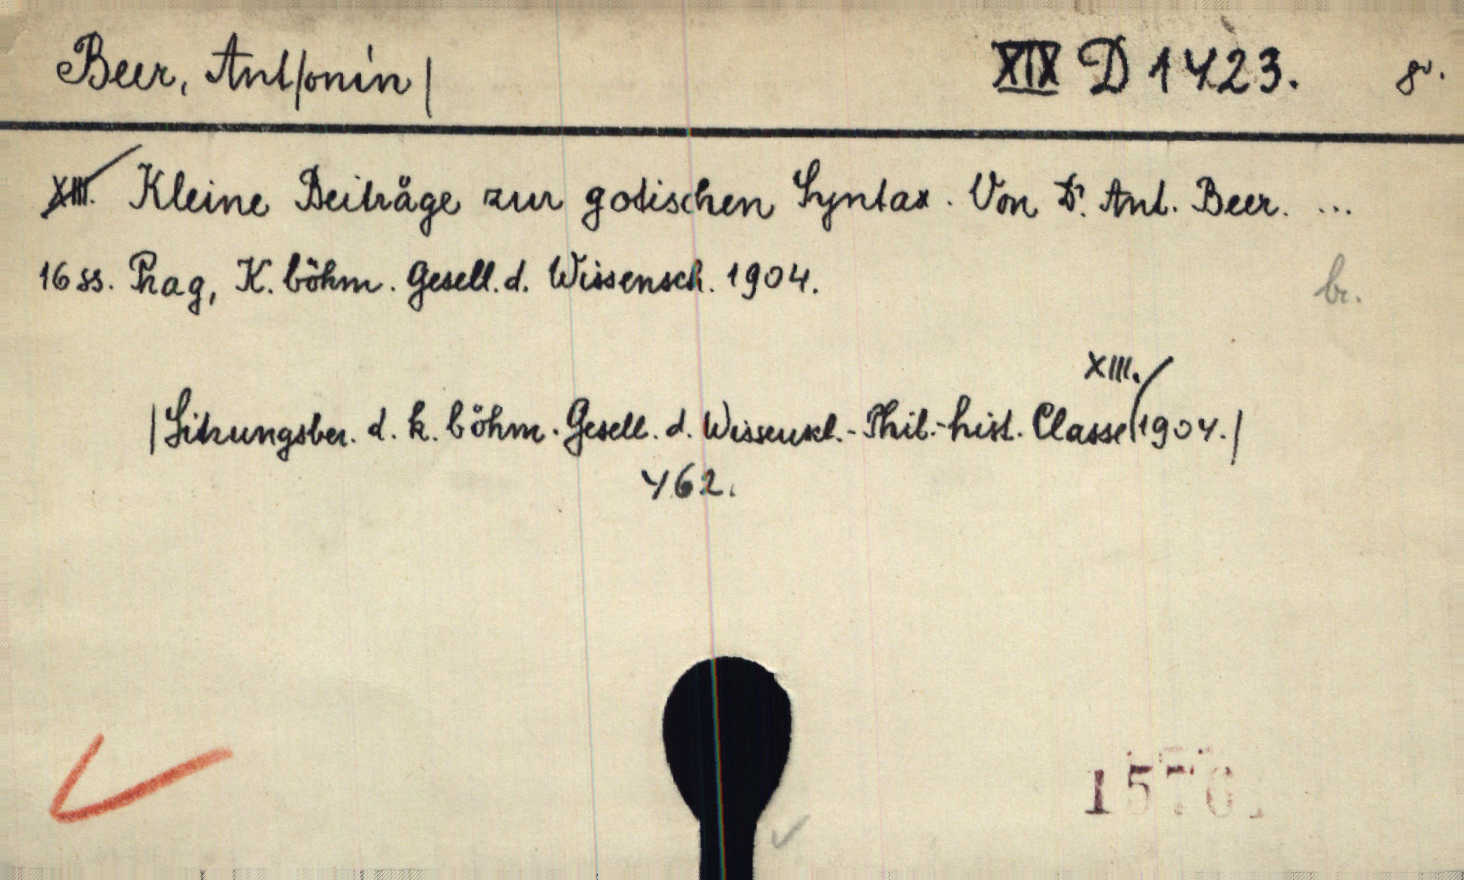 Beer, Ant/onín/ XIX D 1423. 8°.
XIII. Kleine Beiträge zur gotischen Syntax. Von Dr. Ant. Beer. ...
16 ss. Prag, K. böhm. Gesell. d. Wissensch. 1904.
br.
XIII.
/Sitzungsber. d. k. böhm. Gesell. d. Wissensch.-Phil.-hist. Classe 1904./
462.